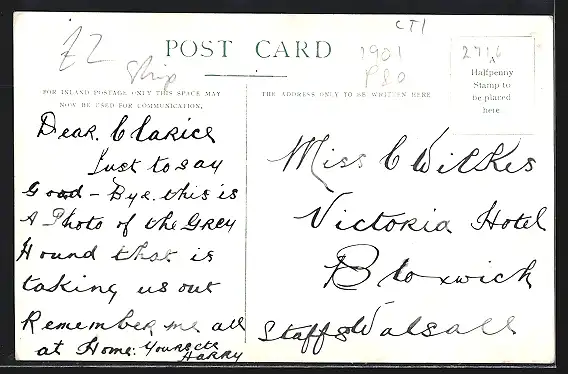 £2
Ship
CT1
POST CARD
1901
P80
2716
A
Halfpenny
Stamp to
be placed
here.
FOR INLAND POSTAGE ONLY THIS SPACE MAY
NOW BE USED FOR COMMUNICATION.
THE ADDRESS ONLY TO BE WRITTEN HERE
Dear. Clarice
Just to say
Good - Bye. this is
A Photo of the Grey
Hound that is
taking us out
Remember me all
at Home: Yours etc
HARRY
Miss C Wilkes
Victoria Hotel
Bloxwich
Staffs Walsall